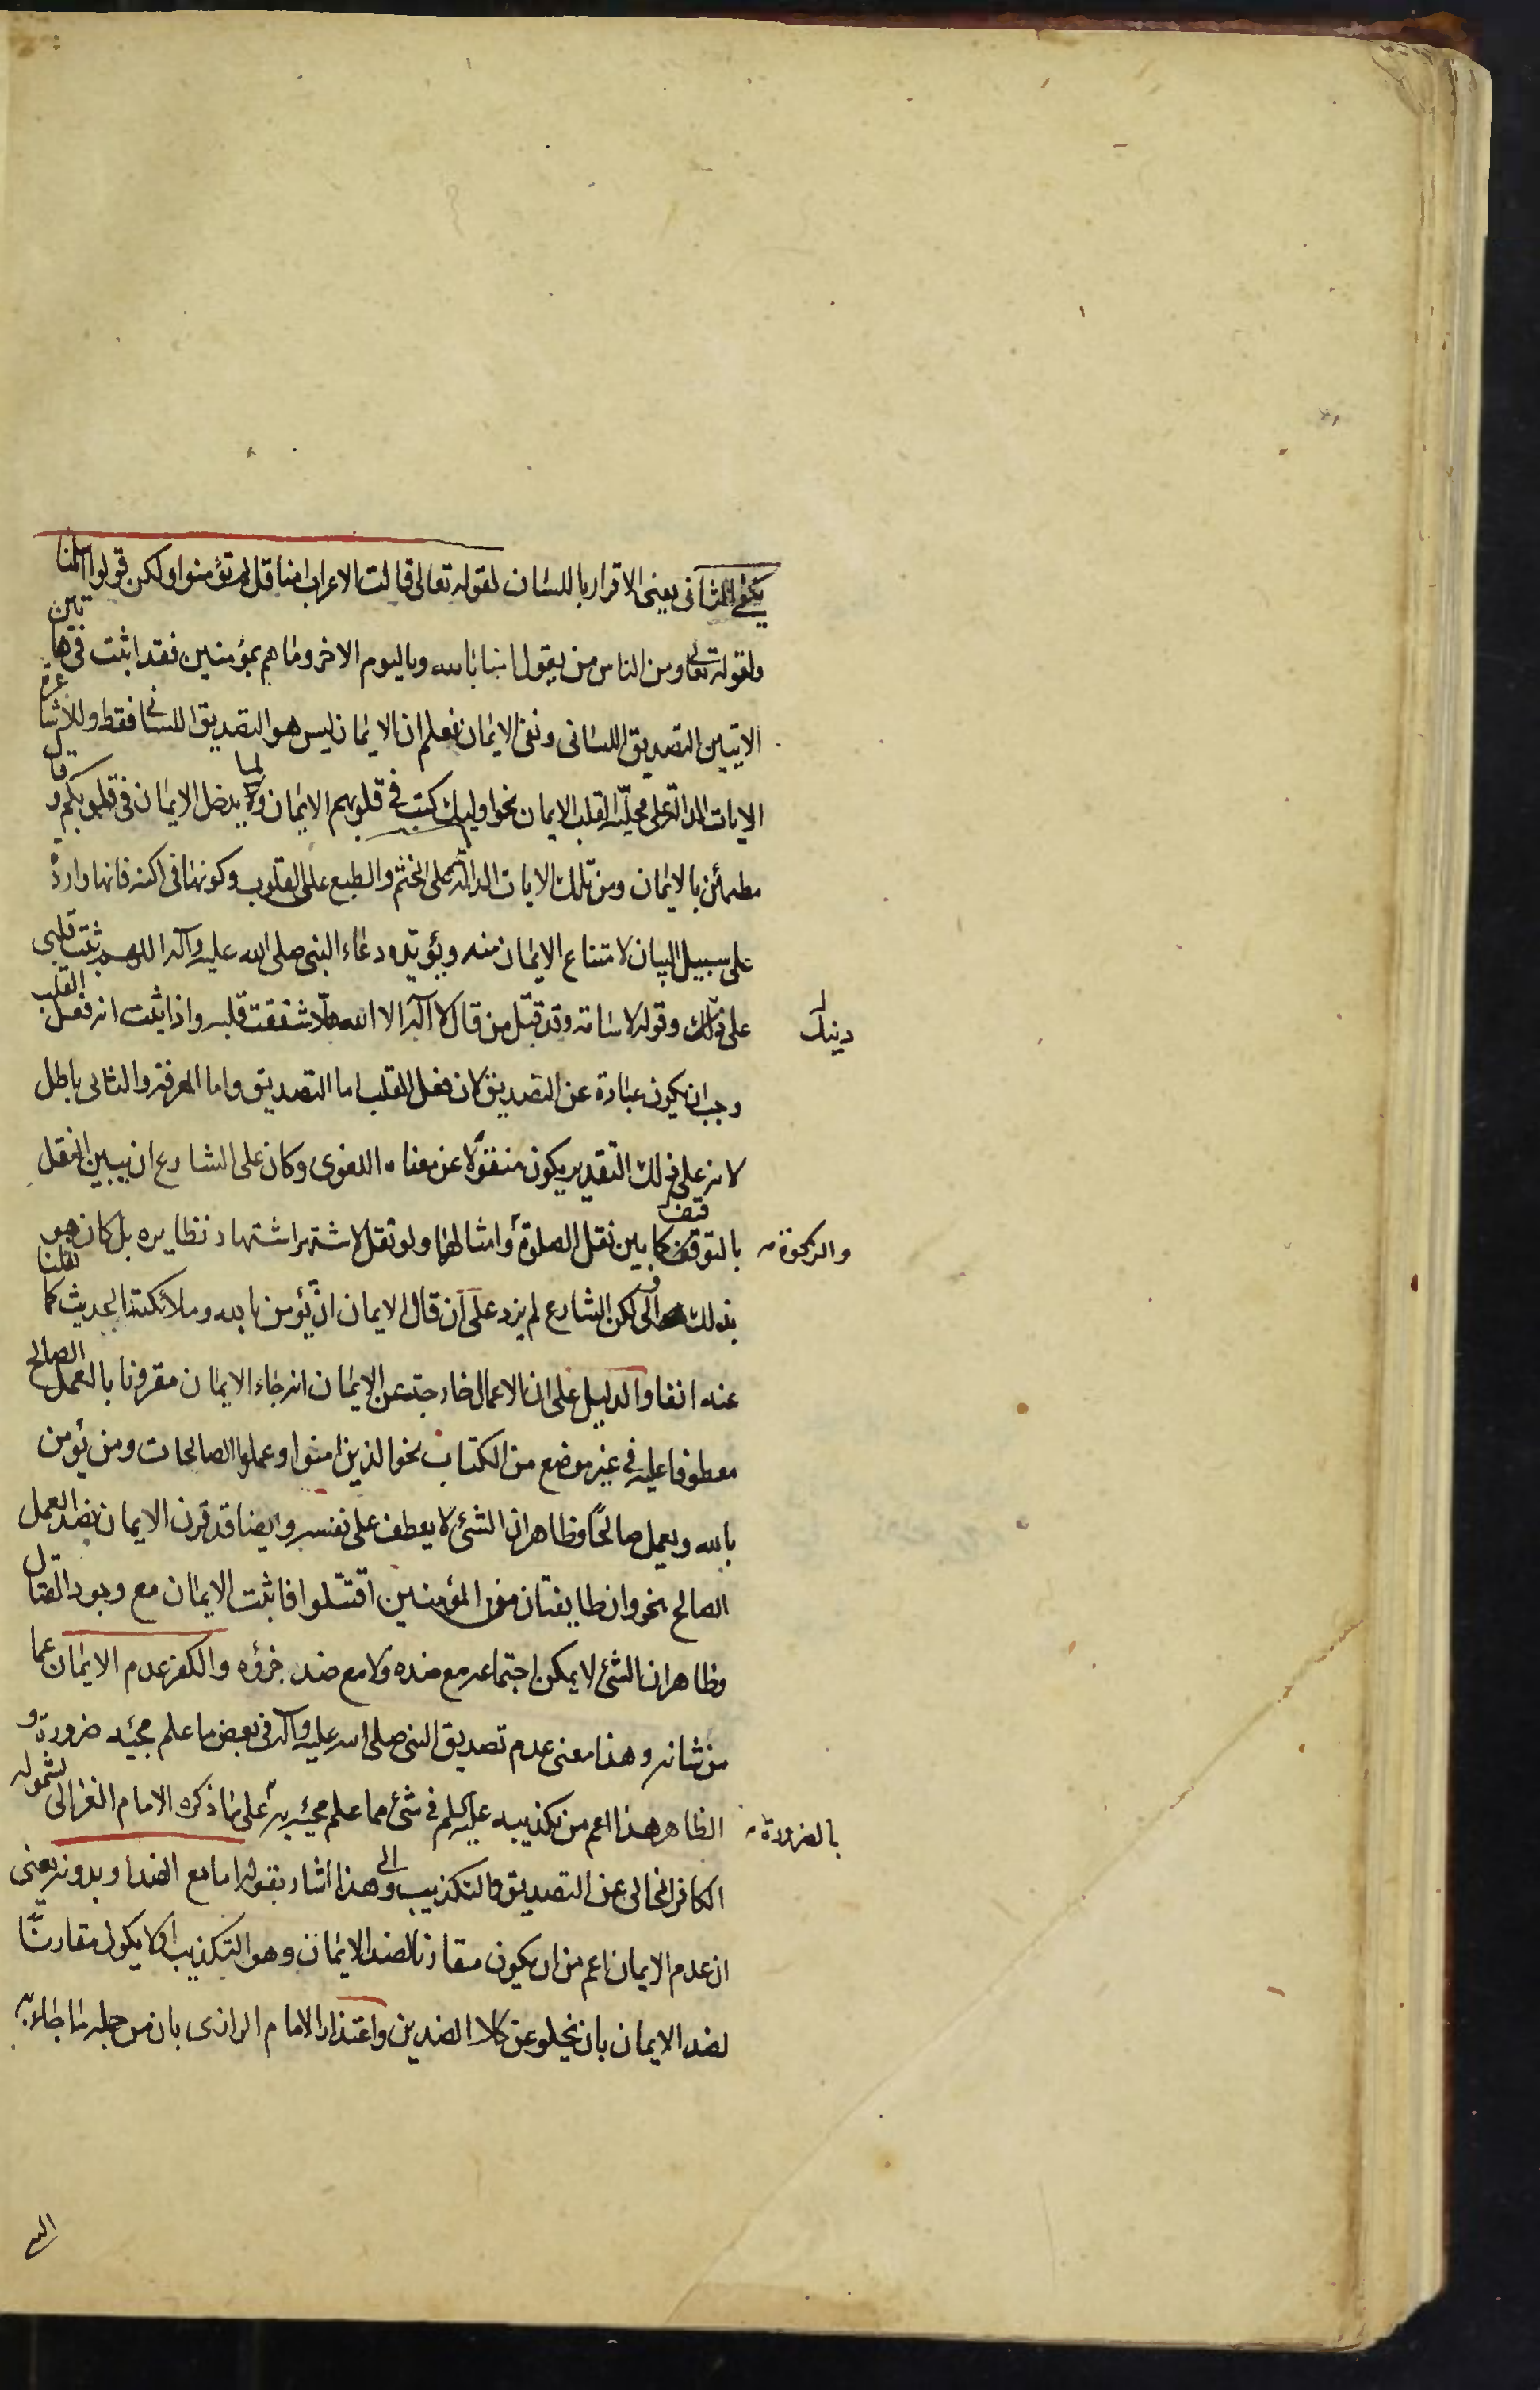 يكفي الثاني يعني الاقرار باللسان لقوله تعالى قالت الاعراب امنا قل لم تؤمنوا ولكن قولوا اسلمنا
ولقوله تعالى ومن الناس من يقول امنا بالله وباليوم الاخر وما هم بمؤمنين فقد اثبت في هاتين
الايتين التصديق اللساني ونفى الايمان فعلم ان الايمان ليس هو التصديق اللساني فقط وللاشاعرة
الايات الدالة على محلية القلب للايمان نحو اوليك كتب في قلوبهم الايمان ولما يدخل الايمان في قلوبكم وقلبه
مطمئن بالايمان ومن تلك الايات الدالة على الختم والطبع على القلوب وكونها في اكنه فانها واردة
على سبيل البيان لامتناع الايمان منه ويؤيده دعاء النبي صلى الله عليه وآله اللهم ثبت قلبي
على دينك وقوله لاسامة وقد قتل من قال لا آله الا الله هلا شققت قلبه واذا ثبت انه فعل القلب
دينك
وجب ان يكون عبارة عن التصديق لان فعل القلب اما التصديق واما المعرفة والثاني باطل
لانه على ذلك التقدير يكون منقولا عن معناه اللغوي وكان على الشارع ان يبين النقل
بالتوقيف كما بين نقل الصلوة وامثالها ولو نقل لاشتهر اشتهار نظايره بل كان هو
والزكوة
بذلك اولى لكن الشارع لم يزد على ان قال الايمان ان تؤمن بالله وملائكته الحديث كما نقلنا
عنه انفا والدليل على ان الاعمال خارجة عن الايمان انه جاء الايمان مقرونا بالعمل الصالح
معطوفا عليه في غير موضع من الكتاب نحو الذين امنوا وعملوا الصالحات ومن يؤمن
بالله ويعمل صالحا وظاهر ان الشئ لا يعطف على نفسه وايضا قد قرن الايمان بضد العمل
الصالح نحو وان طايفتان من المؤمنين اقتتلوا فاثبت الايمان مع وجود القتال
وظاهر ان الشئ لا يمكن اجتماعه مع ضده ولا مع ضد جزؤه والكفر عدم الايمان عما
من شانه وهذا معنى عدم تصديق النبي صلى الله عليه وآله في بعض ما علم مجيئه ضرورة و
الظاهر هذا اعم من تكذيبه عليه السلم في شئ مما علم مجيئه به على ما ذكره الامام الغزالي لشموله
بالضرورة
الكافر الخالي عن التصديق والتكذيب والى هذا اشار بقوله اما مع الضد او بدونه يعني
ان عدم الايمان اعم من ان يكون مقارنا لضد الايمان وهو التكذيب او لا يكون مقارنا
لضد الايمان بان يخلو عن كلا الضدين واعتذار الامام الرازى بان من جملة ما جاء به